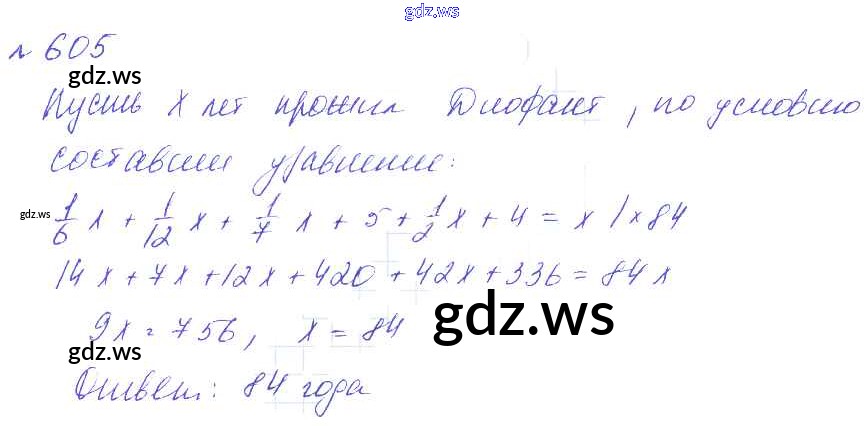 gdz.ws
№ 605
gdz.ws
Пусть x лет прожил Диофант, по условию
составим уравнение:
gdz.ws
1/6 x + 1/12 x + 1/7 x + 5 + 1/2 x + 4 = x | × 84
14x + 7x + 12x + 420 + 42x + 336 = 84x
9x = 756, x = 84
gdz.ws
gdz.ws
Ответ: 84 года